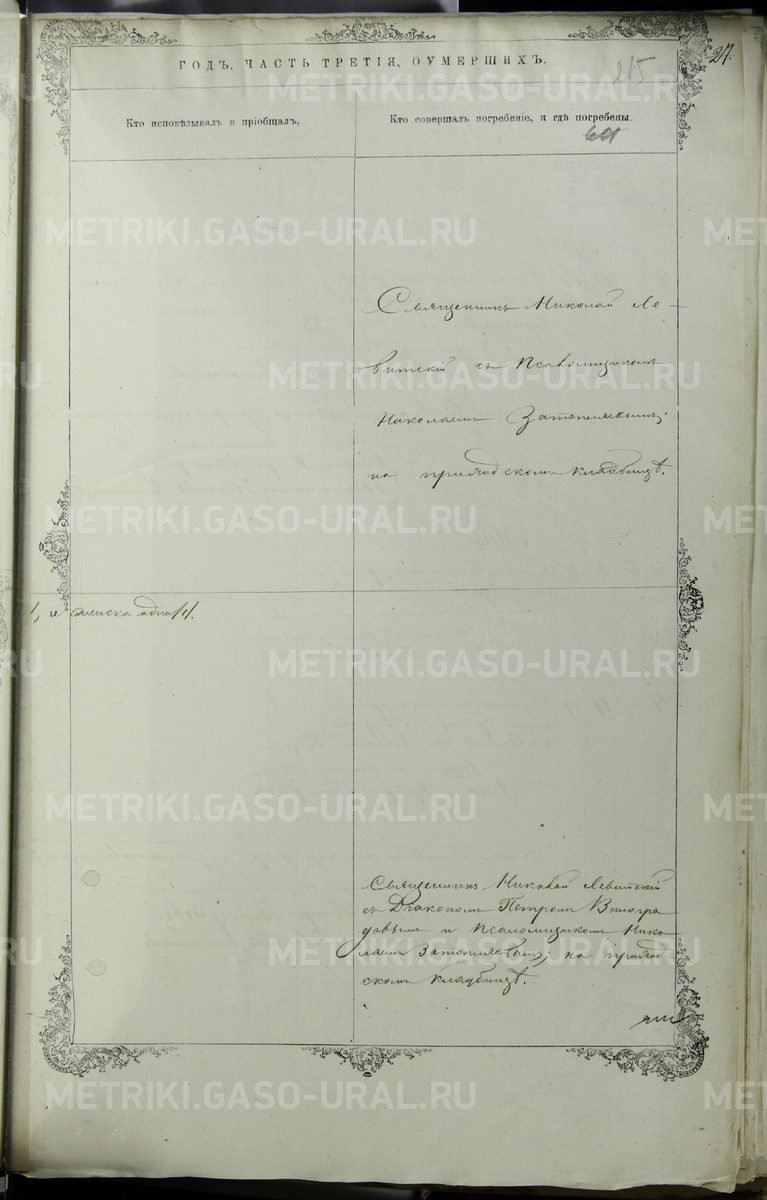 ГОДЪ, ЧАСТЬ ТРЕТІЯ, О УМЕРШИХЪ.
215
27.
Кто исповѣдывалъ и пріобщалъ.
Кто совершалъ погребеніе, и гдѣ погребены.
Священникъ Николай Ле-
витскій съ Псаломщикомъ
Николаемъ
на приходскомъ кладбищѣ.
, и женска одна /1/.
Священникъ Николай Левитскій
съ Діакономъ Петромъ Виногра
довымъ и Псаломщикомъ Нико
лаемъ на приход-
скомъ кладбищѣ.
METRIKI.GASO-URAL.RU